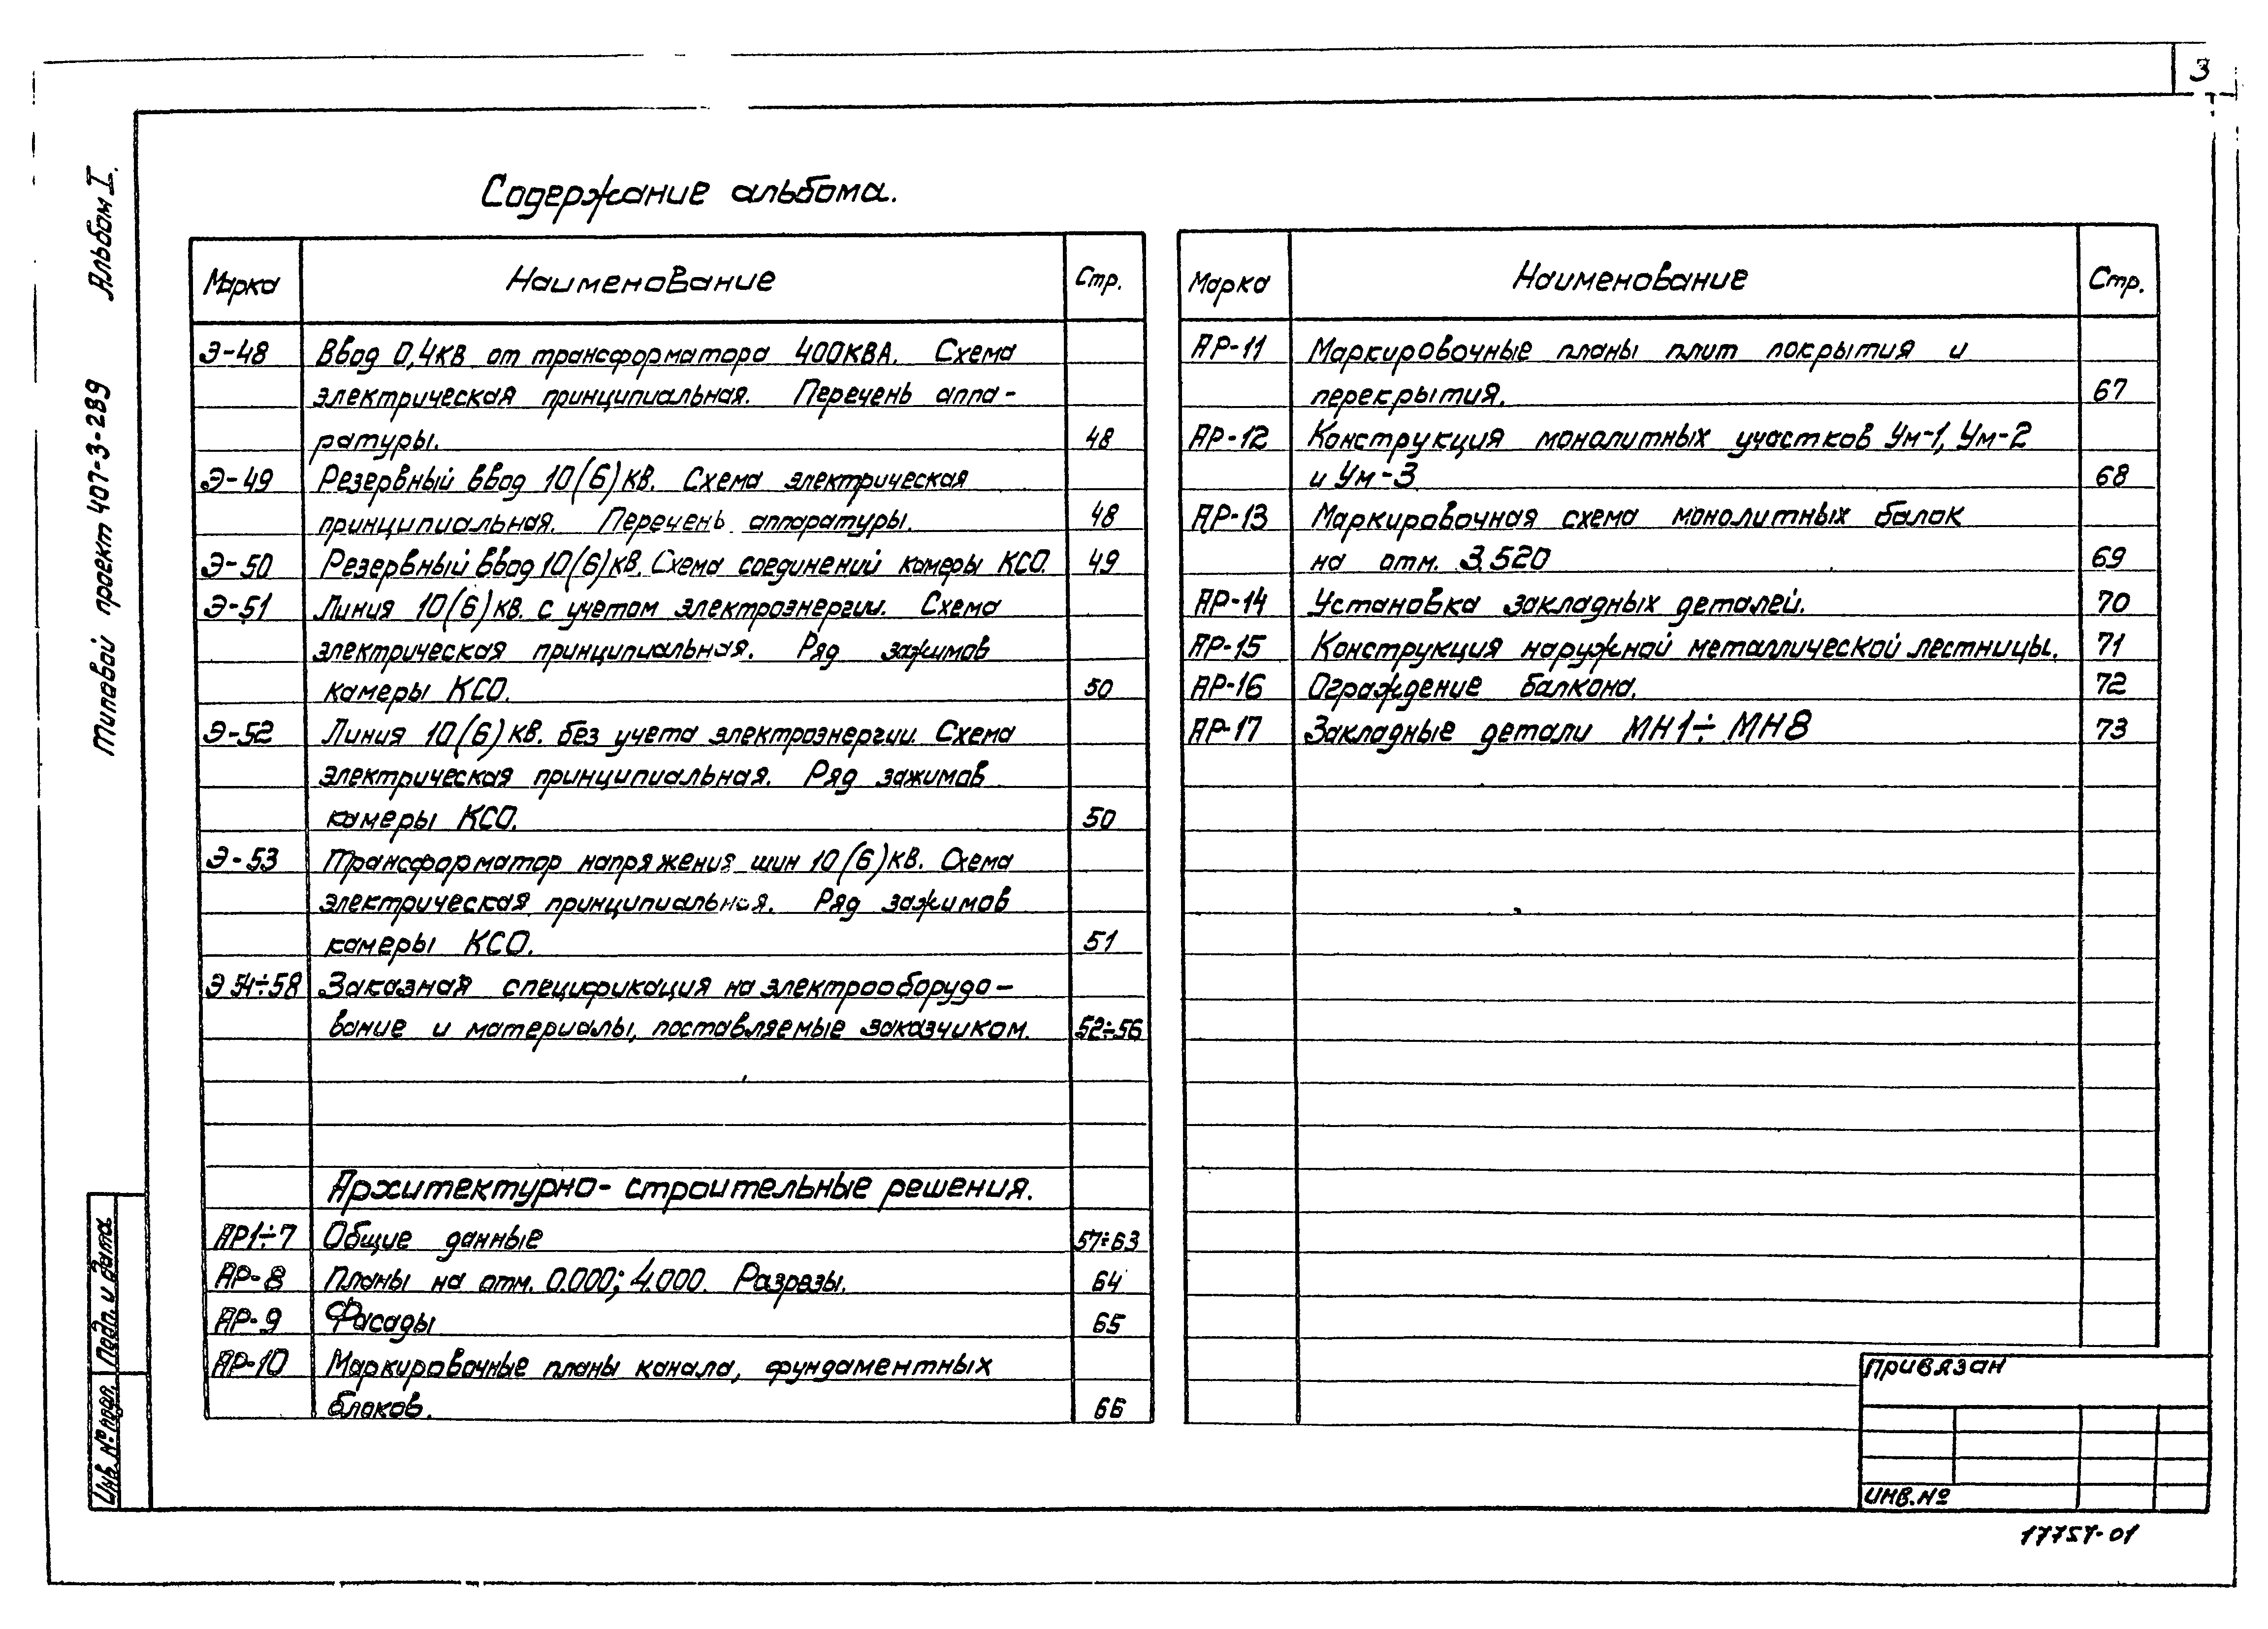 3
Альбом I.
Типовой проект 407-3-289
Содержание альбома.
Марка Наименование Стр.
Э-48 Ввод 0,4кв от трансформатора 400кВА. Схема
электрическая принципиальная. Перечень аппа-
ратуры. 48
Э-49 Резервный ввод 10(6)кв. Схема электрическая
принципиальная. Перечень аппаратуры. 48
Э-50 Резервный ввод 10(6)кв. Схема соединений камеры КСО. 49
Э-51 Линия 10(6)кв. с учетом электроэнергии. Схема
электрическая принципиальная. Ряд зажимов
камеры КСО. 50
Э-52 Линия 10(6)кв. без учета электроэнергии. Схема
электрическая принципиальная. Ряд зажимов
камеры КСО. 50
Э-53 Трансформатор напряжения шин 10(6)кв. Схема
электрическая принципиальная. Ряд зажимов
камеры КСО. 51
Э 54÷58 Заказная спецификация на электрооборудо-
вание и материалы, поставляемые заказчиком. 52÷56
Архитектурно-строительные решения.
АР1÷7 Общие данные 57÷63
АР-8 Планы на отм. 0.000; 4.000. Разрезы. 64
АР-9 Фасады 65
АР-10 Маркировочные планы канала, фундаментных
блоков. 66
Марка Наименование Стр.
АР-11 Маркировочные планы плит покрытия и
перекрытия. 67
АР-12 Конструкция монолитных участков Ум-1, Ум-2
и Ум-3 68
АР-13 Маркировочная схема монолитных балок
на отм. 3.520 69
АР-14 Установка закладных деталей. 70
АР-15 Конструкция наружной металлической лестницы. 71
АР-16 Ограждение балкона. 72
АР-17 Закладные детали МН1÷МН8 73
Подп. и дата
Инв. № подл.
Привязан
инв. №
17757-01